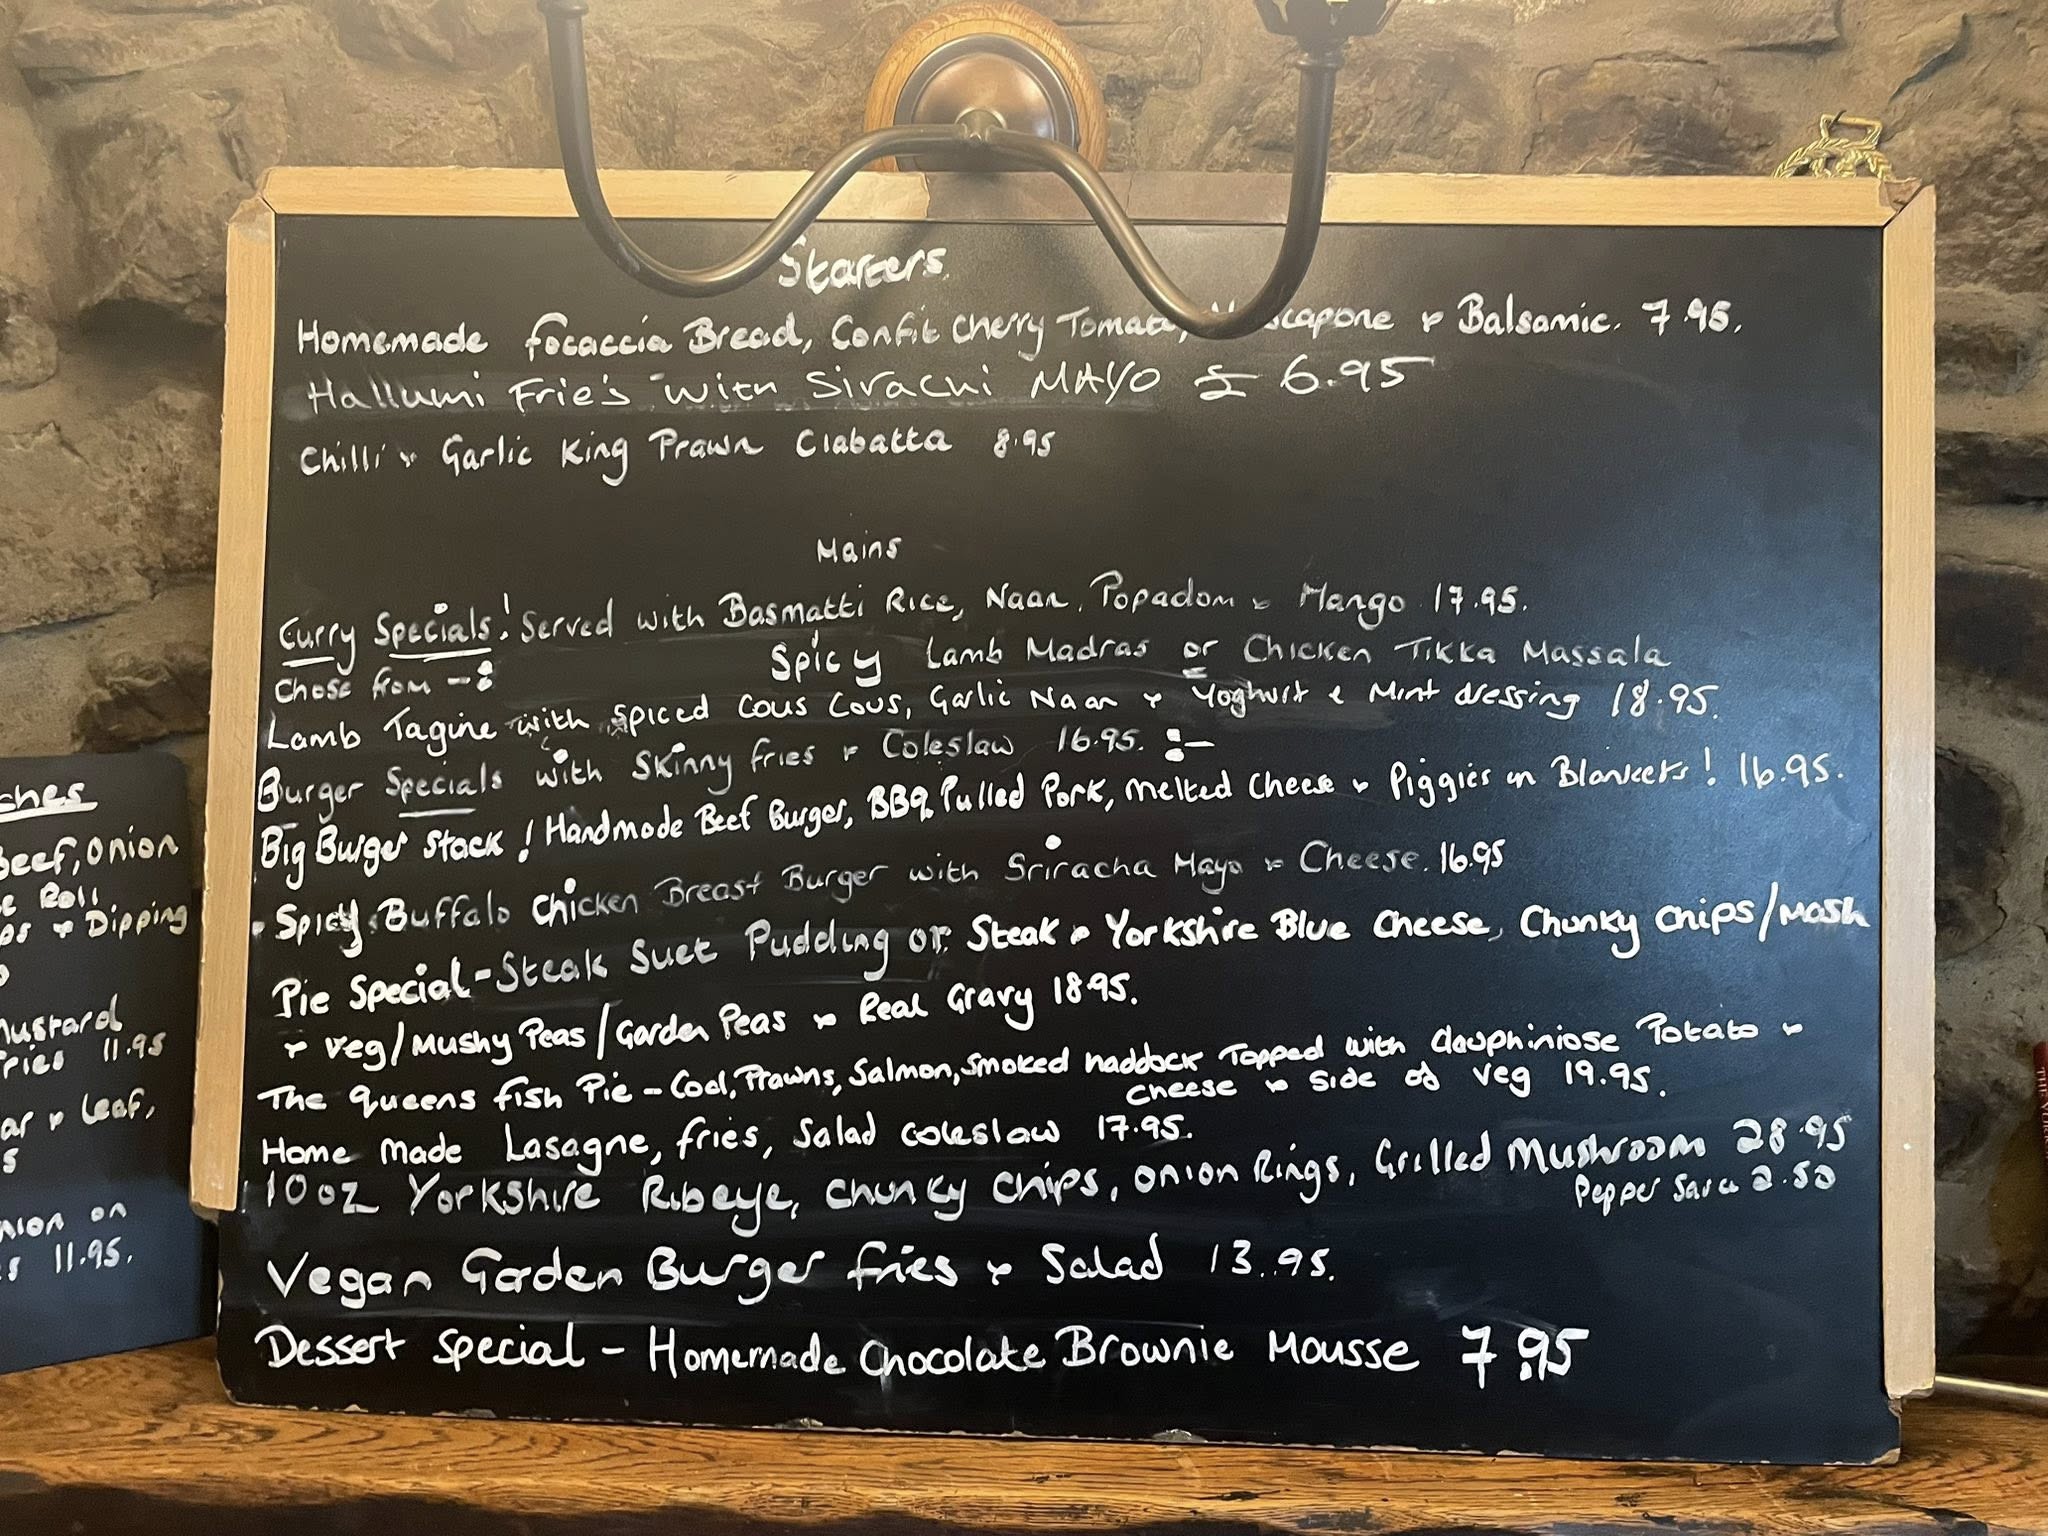 Starters
Homemade focaccia Bread, Confit Cherry Tomato, & Balsamic. 7.95.
Hallumi Frie's with Sirachi MAYO £ 6.95
Chilli & Garlic King Prawn Ciabatta 8.95
Mains
Curry Specials! Served with Basmatti Rice, Naan, Popadom & Mango 17.95.
Chose from -: Spicy Lamb Madras or Chicken Tikka Massala
Lamb Tagine with Spiced Cous Cous, Garlic Naan & Yoghurt & Mint dressing 18.95.
Burger Specials with Skinny fries & Coleslaw 16.95. :-
Big Burger Stack! Handmade Beef Burger, BBQ Pulled Pork, Melted Cheese & Piggies in Blankets! 16.95.
Spicy Buffalo Chicken Breast Burger with Sriracha Mayo & Cheese. 16.95
Pie Special - Steak Suet Pudding or Steak & Yorkshire Blue Cheese, Chunky Chips/Mash
& Veg/Mushy Peas/Garden Peas & Real Gravy 18.95.
The Queens fish Pie - Cod, Prawns, Salmon, Smoked haddock Topped with dauphiniose Potato &
Cheese & side of veg 19.95.
Home Made Lasagne, fries, Salad coleslaw 17.95.
10oz Yorkshire Ribeye, Chunky Chips, Onion Rings, Grilled Mushroom 28.95
Pepper Sauce 2.50
Vegan Garden Burger fries & Salad 13.95.
Dessert Special - Homemade Chocolate Brownie Mousse 7.95
Beef, Onion
Roll
& Dipping
Mustard
11.95
& leaf,
on
11.95.